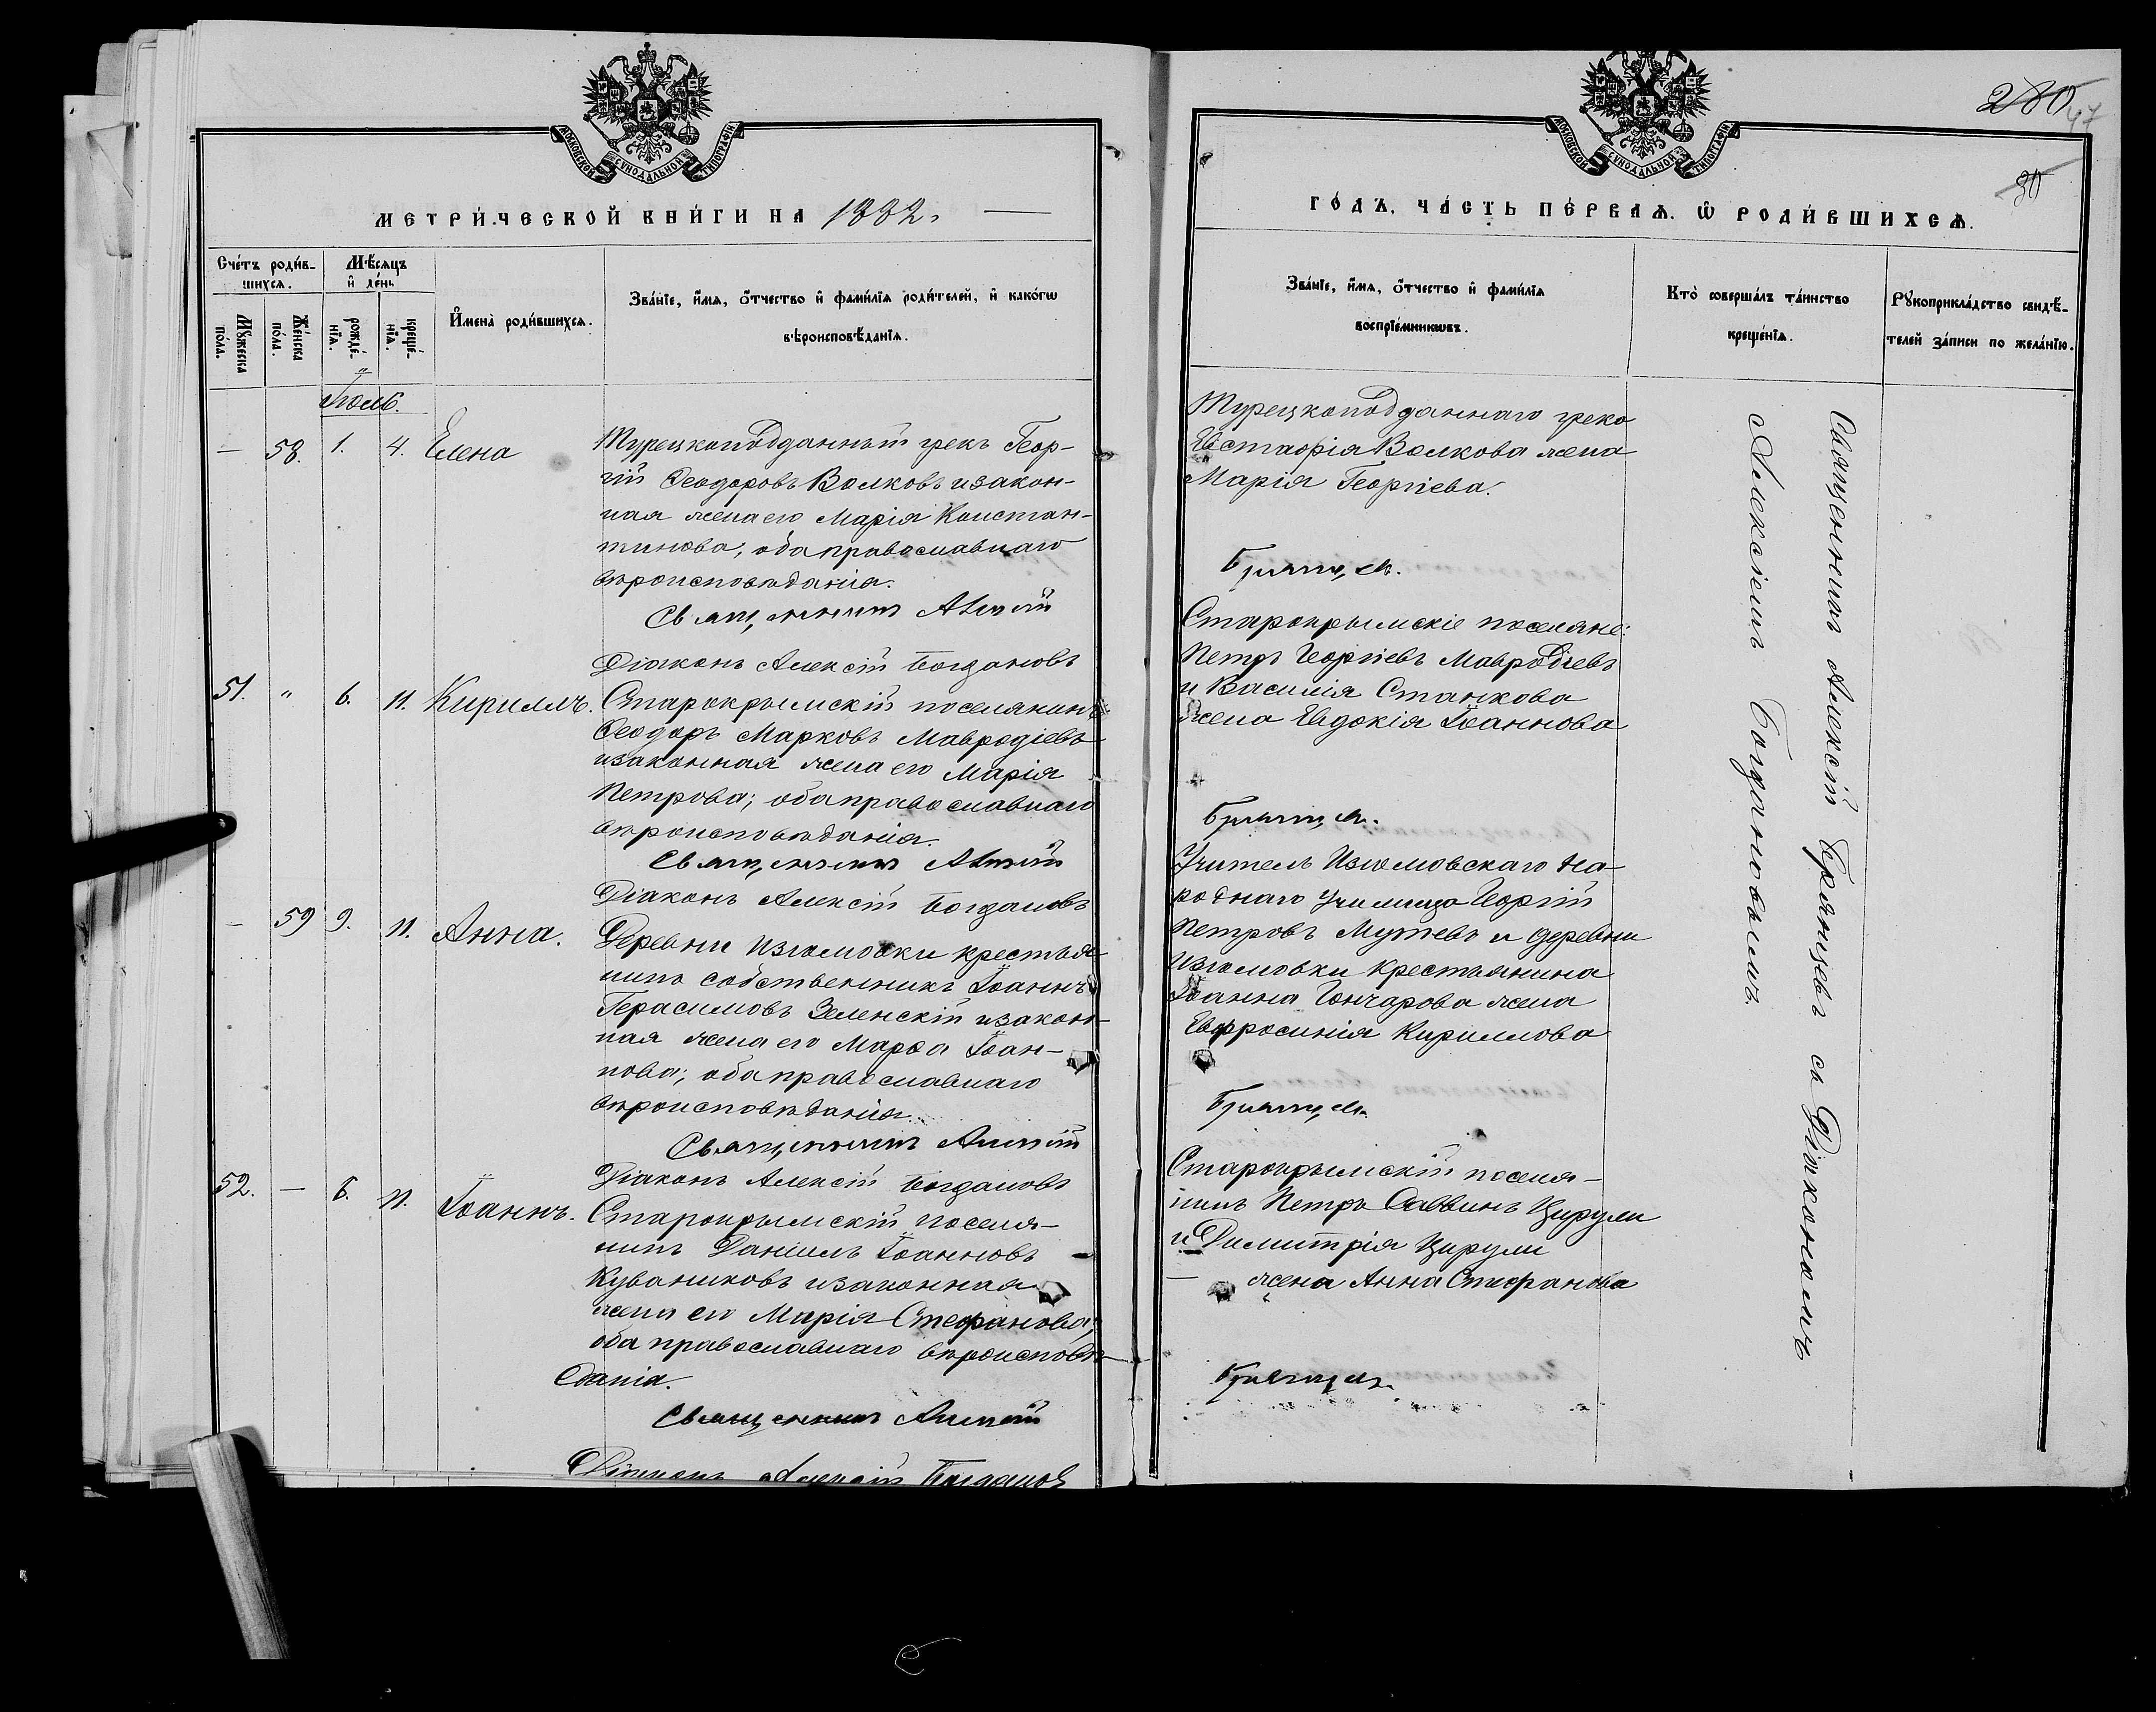 МОСКОВСКОЙ СѴНОДАЛЬНОЙ ТИПОГРАФІИ
МЕТРИ́ЧЕСКОЙ КНИ́ГИ НА 1882.
Сче́тъ роди́в-
шихсѧ.
Мꙋ́жеска
по́ла.
Же́нска
по́ла.
Мѣ́сѧцъ
и҆ де́нь
рожде́-
нїѧ.
креще́-
нїѧ.
И҆мена̀ роди́вшихсѧ.
Зва́нїе, и҆́мѧ, ѻ҆́тчество и҆ фами́лїѧ роди́телей, и҆ како́гѡ
вѣроисповѣ́данїѧ.
Іюль.
— 58. 1. 4. Елена
Турецкоподданный грекъ Геор-
гій Ѳеодоровъ Волковъ и закон-
ная жена его Марія Констан-
тинова; оба православнаго
вѣроисповѣданія.
Священникъ Алексій
Діаконъ Алексій Богдановъ
51. " 6. 11. Кириллъ.
Старокрымскій поселянинъ
Ѳеодоръ Марковъ Мавродіевъ
и законная жена его Марія
Петрова; оба православнаго
вѣроисповѣданія.
Священникъ Алексій
Діаконъ Алексій Богдановъ
— 59 9. 11. Анна.
Деревни Изюмовки крестья-
нинъ собственникъ Іоаннъ
Герасимовъ Зеленскій и закон-
ная жена его Марѳа Іоан-
нова; оба православнаго
вѣроисповѣданія.
Священникъ Алексій
Діаконъ Алексій Богдановъ
52. — 8. 11. Іоаннъ.
Старокрымскій поселя-
нинъ Даніилъ Іоанновъ
Куваниковъ и законная
жена его Марія Стефанова;
оба православнаго вѣроисповѣ-
данія.
Священникъ Алексій
Діаконъ Алексій Богдановъ
280
47
30
МОСКОВСКОЙ СѴНОДАЛЬНОЙ ТИПОГРАФІИ
ГО́ДЪ. ЧА́СТЬ ПЕ́РВАѦ. Ѽ РОДИ́ВШИХСѦ.
Зва́нїе, и҆́мѧ, ѻ҆́тчество и҆ фами́лїѧ
воспрїе́мникѡвъ.
Кто̀ соверша́лъ та́инство
креще́нїѧ.
Рꙋкоприкла́дство свидѣ́-
телей за́писи по жела́нїю.
Турецкоподданнаго грека
Евстафія Волкова жена
Марія Георгіева.
Брянцевъ.
Старокрымскіе поселяне:
Петръ Георгіевъ Мавродіевъ
и Василія Станкова
жена Евдокія Іоаннова
Брянцевъ.
Учитель Изюмовскаго На-
роднаго Училища Георгій
Петровъ Мутевъ и деревни
Изюмовки крестьянина
Іоанна Гончарова жена
Евфросинія Кириллова
Брянцевъ.
Старокрымскій поселя-
нинъ Петръ Саввинъ Цирули
и Димитрія Цирули
— жена Анна Стефанова
Брянцевъ.
Священникъ Алексій Брянцевъ съ Діакономъ
Алексіемъ Богдановымъ